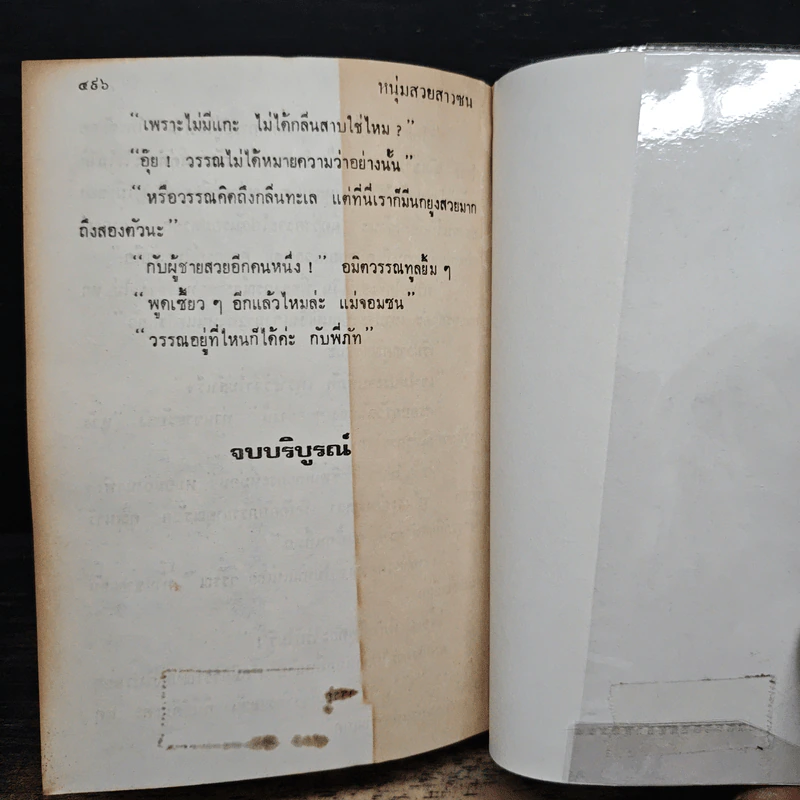 ๔๙๖
หนุ่มสวยสาวซน
“เพราะไม่มีแกะ ไม่ได้กลิ่นสาบใช่ไหม ?”
“อุ๊ย ! วรรณไม่ได้หมายความว่าอย่างนั้น”
“หรือวรรณคิดถึงกลิ่นทะเล แต่ที่นี่เราก็มีนกยูงสวยมาก
ถึงสองตัวนะ”
“กับผู้ชายสวยอีกคนหนึ่ง !” อมิตวรรณทูลยิ้ม ๆ
“พูดเซี้ยว ๆ อีกแล้วไหมล่ะ แม่จอมซน”
“วรรณอยู่ที่ไหนก็ได้ค่ะ กับพี่ภัท”
จบบริบูรณ์